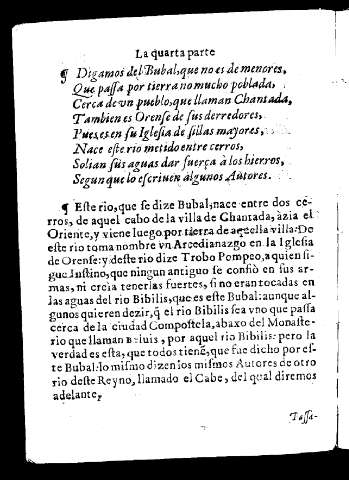 La quarta parte
¶ Digamos del Bubal, que no es de menores,
Que passa por tierra no mucho poblada,
Cerca de vn pueblo, que llaman Chantada,
Tambien es Orense de sus derredores,
Pues, es en su Iglesia de sillas mayores,
Nace este rio metido entre cerros,
Solian sus aguas dar fuerça à los hierros,
Segun que lo escriuen algunos Autores.
¶ Este rio, que se dize Bubal, nace entre dos ce-
rros, de aquel cabo de la villa de Chantada, àzia el
Oriente, y viene luego por tierra de aquella villa: De
este rio toma nombre vn Arcedianazgo en la Iglesia
de Orense: y deste rio dize Trobo Pompeo, a quien si-
gue Iustino, que ningun antiguo se confiò en sus ar-
mas, ni creìa tenerlas fuertes, si no eran tocadas en
las aguas del rio Bibilis, que es este Bubal: aunque al-
gunos quieren dezir, q̃ el rio Bibilis sea vno que passa
cerca de la ciudad Compostela, abaxo del Monaste-
rio que llaman Beluis, por aquel rio Bibilis: pero la
verdad es esta, que todos tienẽ, que fue dicho por es-
te Bubal: lo mismo dizen los mismos Autores de otro
rio deste Reyno, llamado el Cabe, del qual diremos
adelante,
Passa-